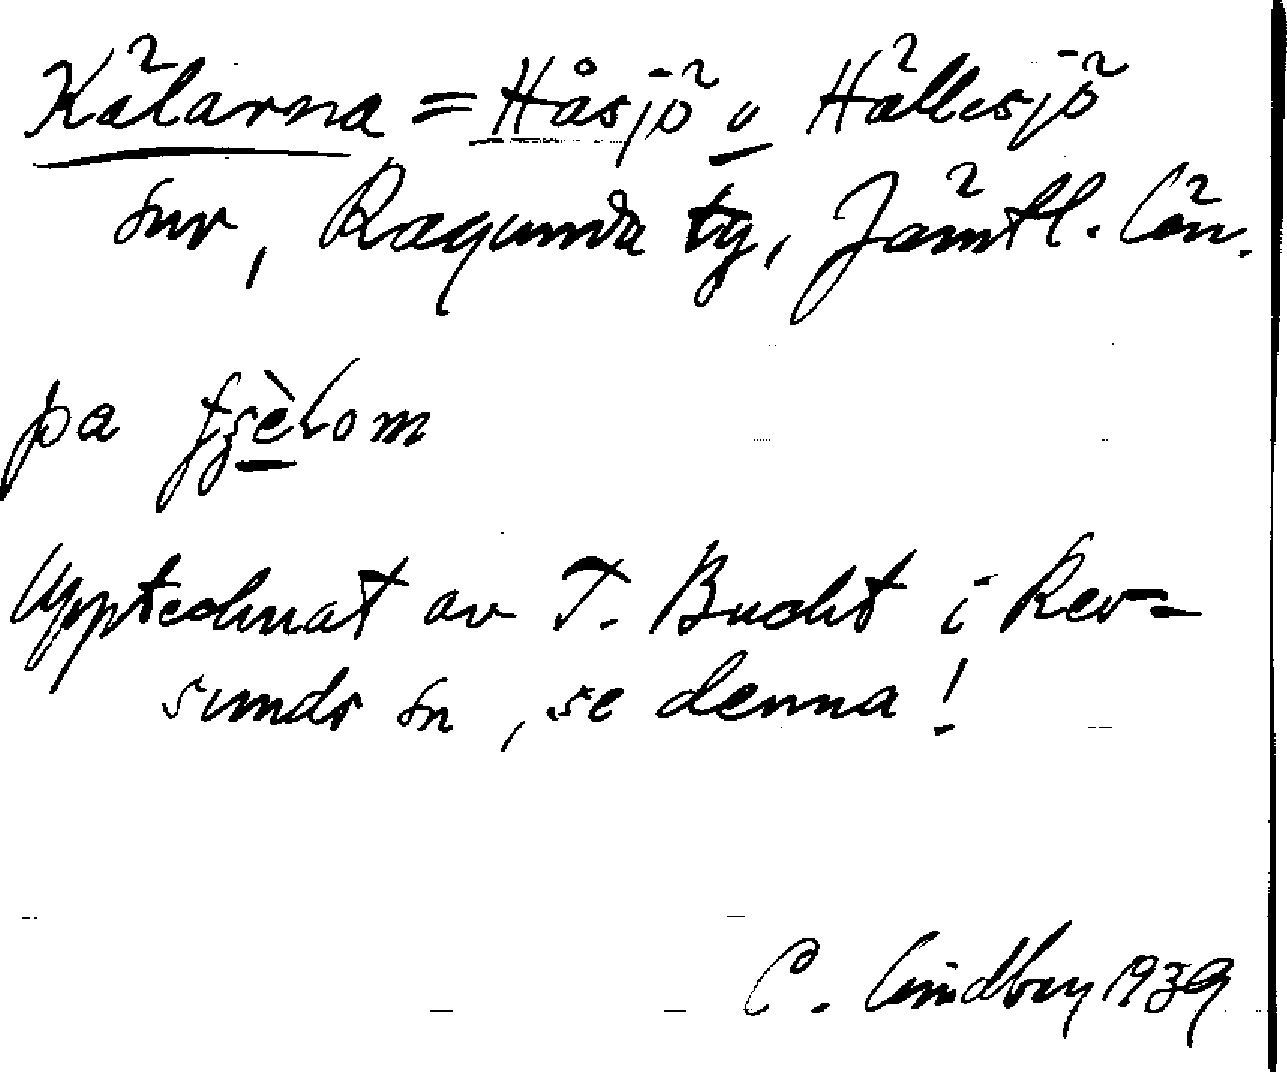 Kälarna = Håsjö o Hällesjö
snr, Ragunda tg, Jämtl. län.
pa
Upptecknat av T. Bucht i Rev=
sunds sn, se denna!
C. Lindberg 1939